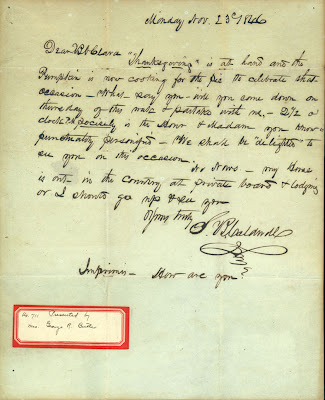 Monday Nov. 23d
Dear Clara "Thanksgiving" is at hand and the
Pumpkin is now cooking for the pie to celebrate that
occasion – What say you – will you come down on
thursday of this week & partake with us, – 2 1/2 o
clock precisely is the Hour & Madam you know is
punctuality personified – We shall be delighted to
see you on this occasion.
No News – my Horse
is out in the Country at private board & lodging
or I should go up & see you
Yours truly
Imprimis – How are you?
No. 711 Presented by
Mrs. George R.